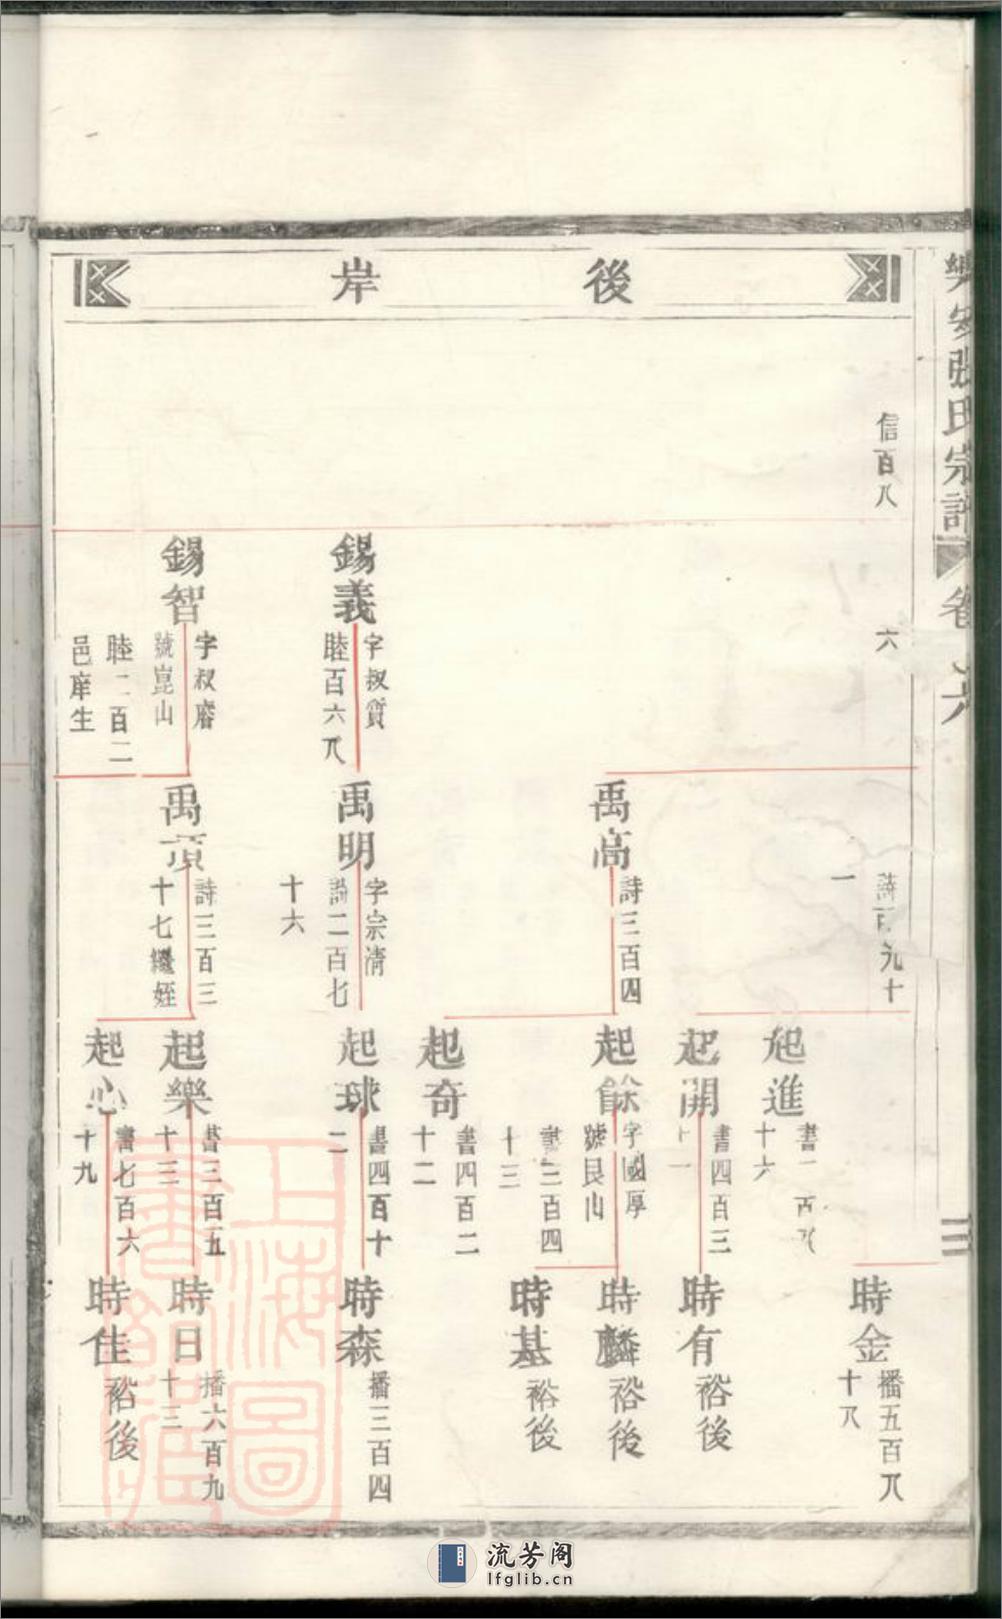 樂安張氏宗譜 卷六
三
後岸
信百八
六
詩百九十
一
禹高
詩三百四
禹明
字宗清
詩二百七
十六
禹頂
詩三百三
十七繼姪
錫義
字叔質
睦百六八
錫智
字叔睿
號崑山
睦二百二
邑庠生
起進
十六
起開
書四百三
十一
起餘
字國厚
號艮山
書三百四
十三
起奇
書四百二
十二
起球
書四百十
二
起樂
書三百五
十三
起心
書七百六
十九
時金
播五百八
十八
時有
裕後
時麟
裕後
時基
裕後
時森
播三百四
時日
播六百九
十三
時佳
裕後
上海圖書館藏
流芳阁
lfglib.cn